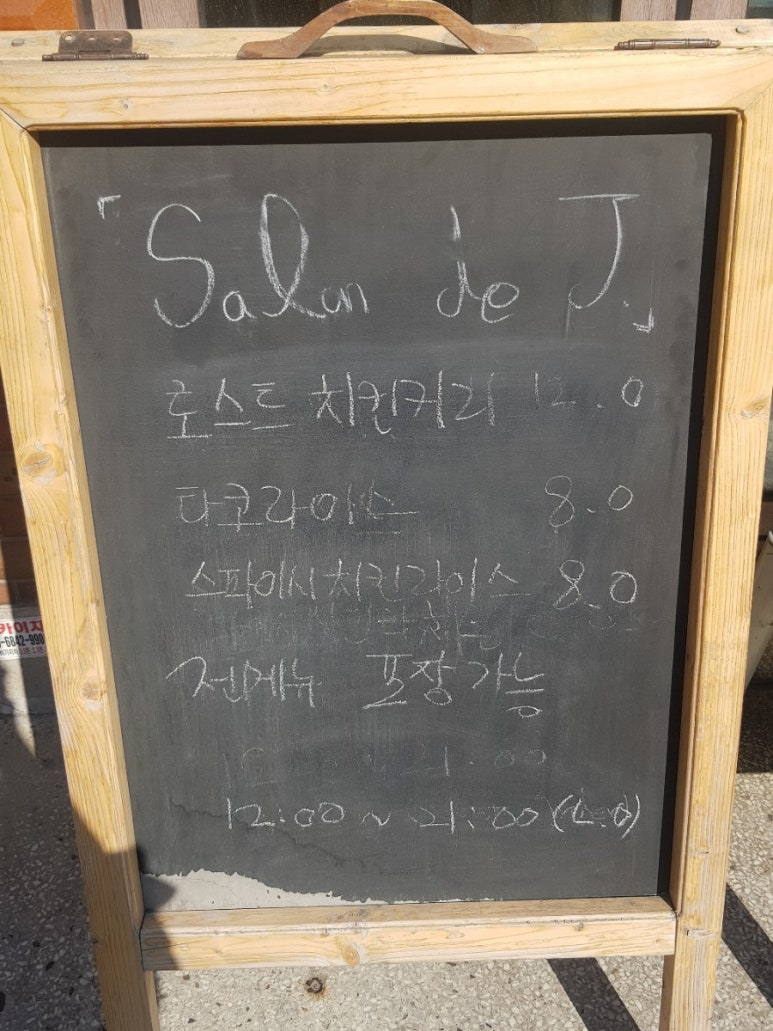 「Salon de J.」
로스트 치킨커리 12.0
타코라이스 8.0
스파이시치킨라이스 8.0
전메뉴 포장가능
21.00
12:00 ~ 21:00 (L.O)
카이지
-6842-990